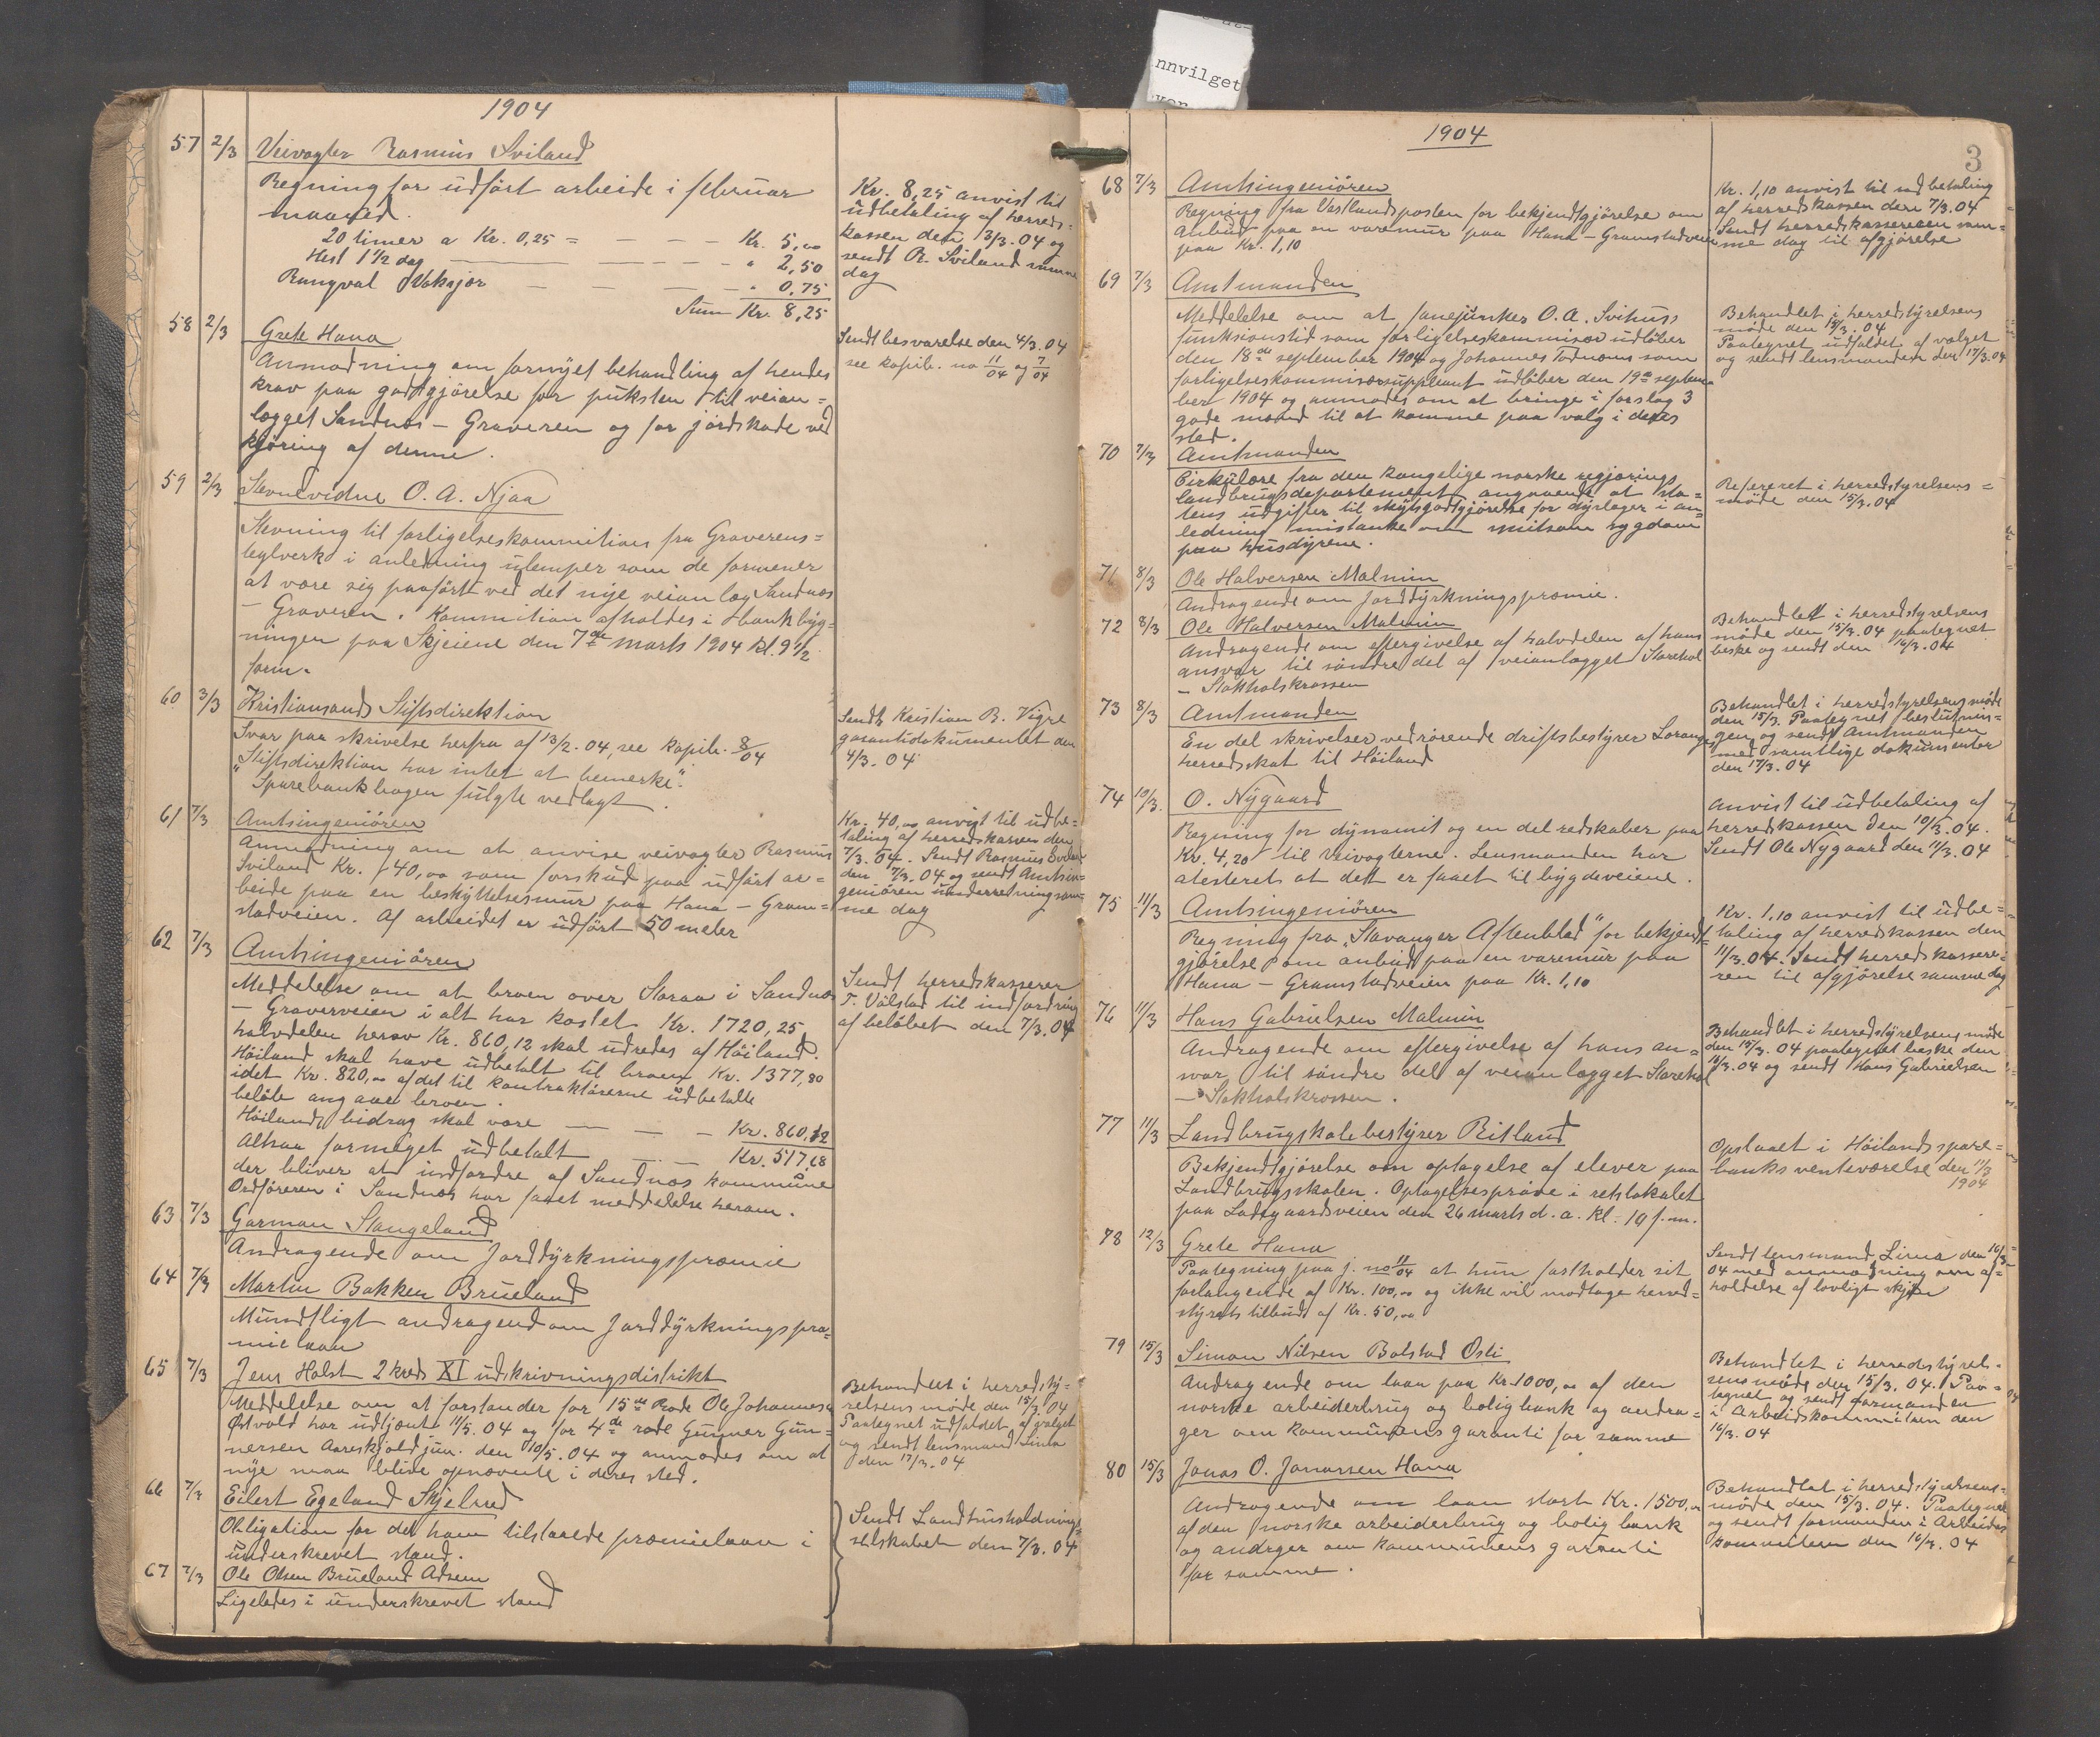 nnvilget
1904
57 2/3 Veivogter Rasmus Sviland
Regning for udført arbeide i februar
maaned.
20 timer a Kr. 0,25 = — — — Kr. 5,00
Hest 1 1/2 dag — — — — " 2,50
Rangval Vaksjør — — — — " 0,75
Sum Kr. 8,25
Kr. 8,25 anvist til
udbetaling af herreds-
kassen den 3/3. 04 og
sendt R. Sviland samme
dag
58 2/3 Grete Hana
Anmodning om fornyet behandling af hendes
krav paa godtgjørelse for puksten til veian=
lægget Sandnæs – Graveren og for jordskade ved
kjøring af denne.
Sendt besvarelse den 4/3. 04
see kopib. no 11/04 og 7/04
59 2/3 Stevnevidne O. A. Njaa
Stevning til forligelseskommition fra Graverens=
teglverk i anledning ulemper som de formener
at være sig paaført ved det nye veianlæg Sandnæs
– Graveren. Kommition afholdes i Bankbyg=
ningen paa Skjeiene den 7de marts 1904 kl. 9 1/2
form.
60 3/3 Kristiansands Stiftsdirektion
Svar paa skrivelse herfra af 13/2. 04, see kopib. 8/04
"Stiftsdirektion har intet at bemerke".
Sparebankbogen fulgte vedlagt.
Sendt Kristian R. Vigre
garantidokumentet den
4/3. 04
61 7/3 Amtsingeniøren
Anmodning om at anvise veivogter Rasmus
Sviland Kr. 40,00 som forskud paa udført ar=
beide paa en beskyttelsesmur paa Hana – Gram=
stadveien. Af arbeidet er udført 50 meter
Kr. 40,00 anvist til udbe=
taling af herredskassen den
7/3. 04. Sendt Rasmus Sviland
den 7/3. 04 og sendt Amtsin=
geniøren underretning sam=
me dag
62 7/3 Amtsingeniøren
Meddelelse om at broen over Storaa i Sandnæs
– Graverveien i alt har kostet Kr. 1720,25
halvdelen herav Kr. 860,12 skal udredes af Höiland.
Höiland skal have udbetalt til broen Kr. 1377,80
idet Kr. 820,00 af det til kontraktørerne udbetalte
beløb angaar broen.
Höilands bidrag skal være — — — Kr. 860,12
Altsaa formeget udbetalt — — Kr. 517,68
der bliver at indfordre af Sandnæs kommune
Ordføreren i Sandnæs har faaet meddelelse herom.
Sendt herredskasserer
T. Völstad til indfordring
af beløbet den 7/3. 04
63 7/3 Garman Stangeland
Andragende om Jorddyrkningspræmie
64 7/3 Martin Bakken Brueland
Mundtligt andragend om Jorddyrkningspræ=
mielaan
65 7/3 Jens Holst 2 kreds XI udskrivningsdistrikt
Meddelelse om at forstander for 15de Rode Ole Johannesen
Østvold har udtjent 11/5. 04 og for 4de rode Gunner Gun=
nersen Aareskjold jun. den 10/5. 04 og anmodes om at
nye maa blive opnævnte i deres sted.
Behandlet i herredsty=
relsens møde den 15/3 04
Paategnet udfaldet af valget
og sendt lensmand Lima
den 17/3. 04
66 7/3 Eilert Egeland Skjelbred
Obligation for det ham tilstaaede præmielaan i
underskrevet stand.
67 7/3 Ole Olsen Brueland Adsen
Ligeledes i underskrevet stand
Sendt Landhusholdnings
selskabet den 7/3. 04
1904
3
68 7/3 Amtsingeniøren
Regning fra Vestlandsposten for bekjendtgjørelse om
anbud paa en varemur paa Hana – Gramstadveien
paa Kr. 1,10
Kr. 1,10 anvist til udbetaling
af herredskassen den 7/3. 04
Sendt herredskassereren sam=
me dag til afgjørelse
69 7/3 Amtmanden
Meddelelse om at fanejunker O. A. Svihus's
funksionstid som forligelseskommisær udløber
den 18de september 1904 og Johannes Todnems som
forligelseskommisærsuppleant udløber den 19de septem=
ber 1904 og anmodes om at bringe i forslag 3
gode mænd til at komme paa valg i deres
sted.
Behandlet i herredstyrelsens
møde den 15/3. 04
Paategnet udfaldet af valget
og sendt lensmanden den 17/3. 04
70 7/3 Amtmanden
Cirkulære fra den kongelige norske regjerings
landbrugsdepartement angaaende at sta=
tens udgifter til skydsgodtgjørelse for dyrlæger i an=
ledning mistanke om smitsom sygdom
paa husdyrene.
Refereret i herredstyrelsens=
møde den 15/3. 04
71 8/3 Ole Halversen Malmin
Andragende om Jorddyrkningspræmie.
72 8/3 Ole Halversen Malmin
Andragende om eftergivelse af halvdelen af hans
ansvar til søndre del af veianlægget Storehol
– Stokholskrossen
Behandlet i herredstyrelsens
møde den 15/3. 04 paategnet
beske og sendt den 16/3. 04
73 8/3 Amtmanden
En del skrivelser vedrørende driftsbestyrer Lorange
herredsskat til Höiland
Behandlet i herredstyrelsens møde
den 15/3. Paategnet beslutnin=
gen og sendt Amtmanden
med samtlige dokumenter
den 17/3. 04
74 10/3. O. Nygaard
Regning for dynamit og en del redskaber paa
Kr. 4,20 til veivogterne. Lensmanden har
atesteret at det er faaet til bygdeveiene.
Anvist til udbetaling af
herredskassen den 10/3. 04.
Sendt Ole Nygaard den 11/3. 04
75 11/3 Amtsingeniøren
Regning fra "Stavanger Aftenblad" for bekjendt=
gjørelse om anbud paa en varemur paa
Hana – Gramstadveien paa Kr. 1,10
Kr. 1,10 anvist til udbe=
taling af herredskassen den
11/3. 04. Sendt herredskassere=
ren til afgjørelse samme dag
76 11/3 Hans Gabrielsen Malmin
Andragende om eftergivelse af hans an=
svar til søndre del af veianlægget Storehol
– Stokholskrossen.
Behandlet i herredstyrelsens møde
den 15/3. 04 paategnet beske den
16/3. 04 og sendt Hans Gabrielsen
77 11/3 Landbrugskolebestyrer Ritland
Bekjendtgjørelse om optagelse af elever paa
Landbrugsskolen. Optagelsesprøve i retslokalet
paa Ladegaardsveien den 26 marts d. a. Kl. 10 f.m.
Opslaaet i Höilands spare=
banks venteværelse den 11/3
1904
78 12/3 Grete Hana
Paategning paa j. no 11/04 at hun fastholder sit
forlangende af Kr. 100,00 og ikke vil modtage herred=
styrets tilbud af Kr. 50,00
Sendt lensmand Lima den 16/3
04 med anmodning om af=
holdelse af lovligt skjøn
79 15/3 Simon Nilsen Bolstad Osli
Andragende om laan paa Kr 1000,00 af den
norske arbeiderbrug og boligbank og andra=
ger om kommunens garanti for samme
Behandlet i herredstyrel=
sens møde den 15/3. 04. Paa=
tegnet og sendt formanden
i Arbeidskommiteen den
16/3. 04
80 15/3 Jonas O. Jonassen Hana
Andragende om laan stort Kr. 1500,00
af den norske arbeiderbrug og bolig bank
og andrger om kommunens garanti
for samme.
Behandlet i herredstyrelsens=
møde den 15/3. 04. Paategnet
og sendt formanden i Arbeids
kommiteen den 16/3. 04